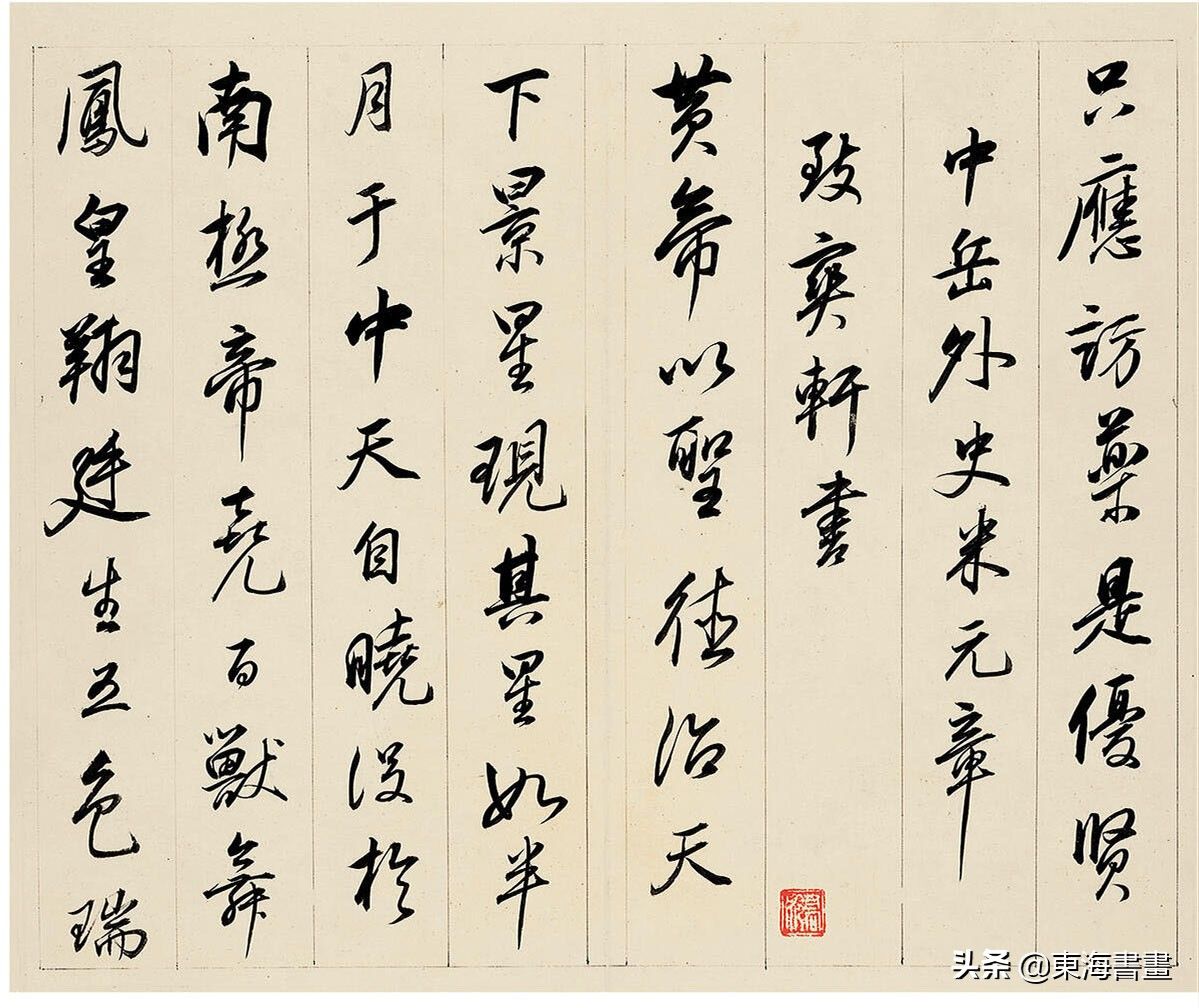 只應訪藥是優賢
中岳外史米元章
致爽軒書
黄帝以聖德治天
下景星現其星如半
月于中天自曉没於
南極帝堯百獸舞
鳳皇翔廷生五色瑞
头条 @東海書畫